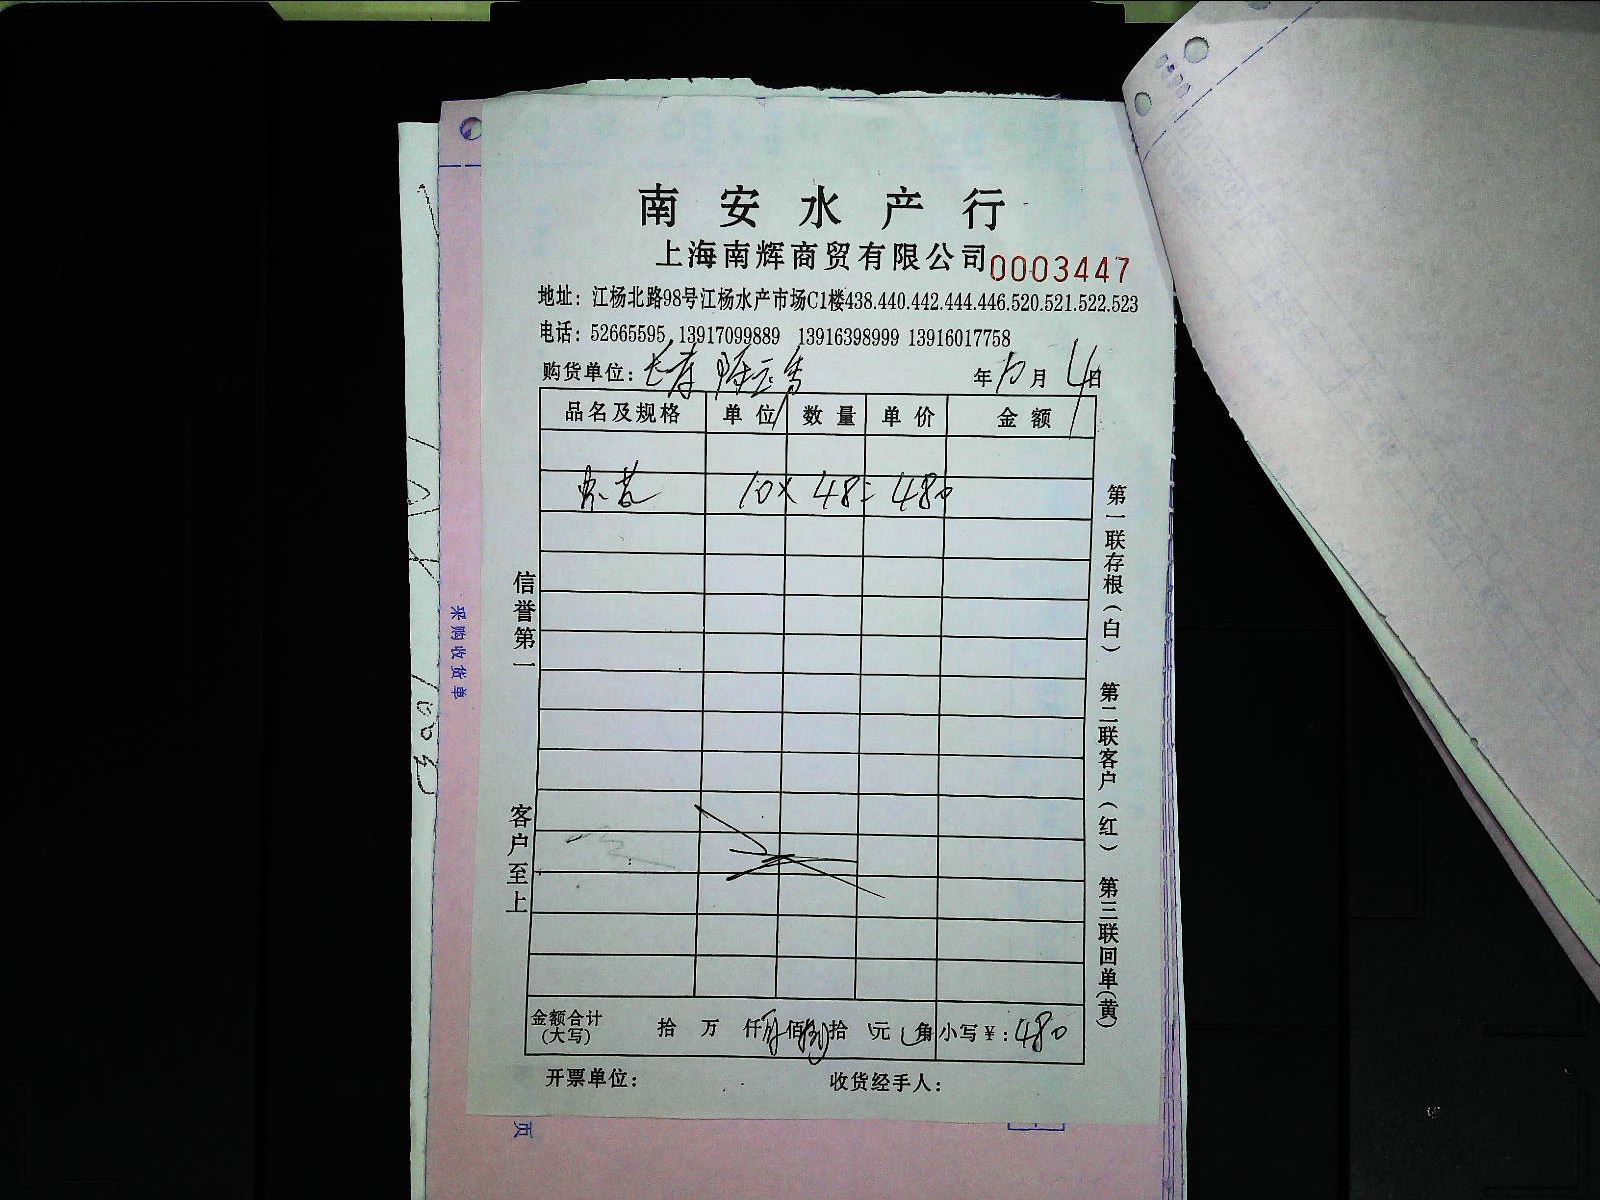 南安水产行
上海南辉商贸有限公司 0003447
地址：江杨北路98号江杨水产市场C1楼438.440.442.444.446.520.521.522.523
电话：52665595 13917099889 13916398999 13916017758
购货单位：长寿 年 10月 4日
品名及规格 单位 数量 单价 金额
10×48=480
金额合计(大写) 拾 万 仟 佰 拾 元 角 小写￥：480
开票单位： 收货经手人：
信誉第一 客户至上
第一联存根（白） 第二联客户（红） 第三联回单(黄)
采购收货单
页